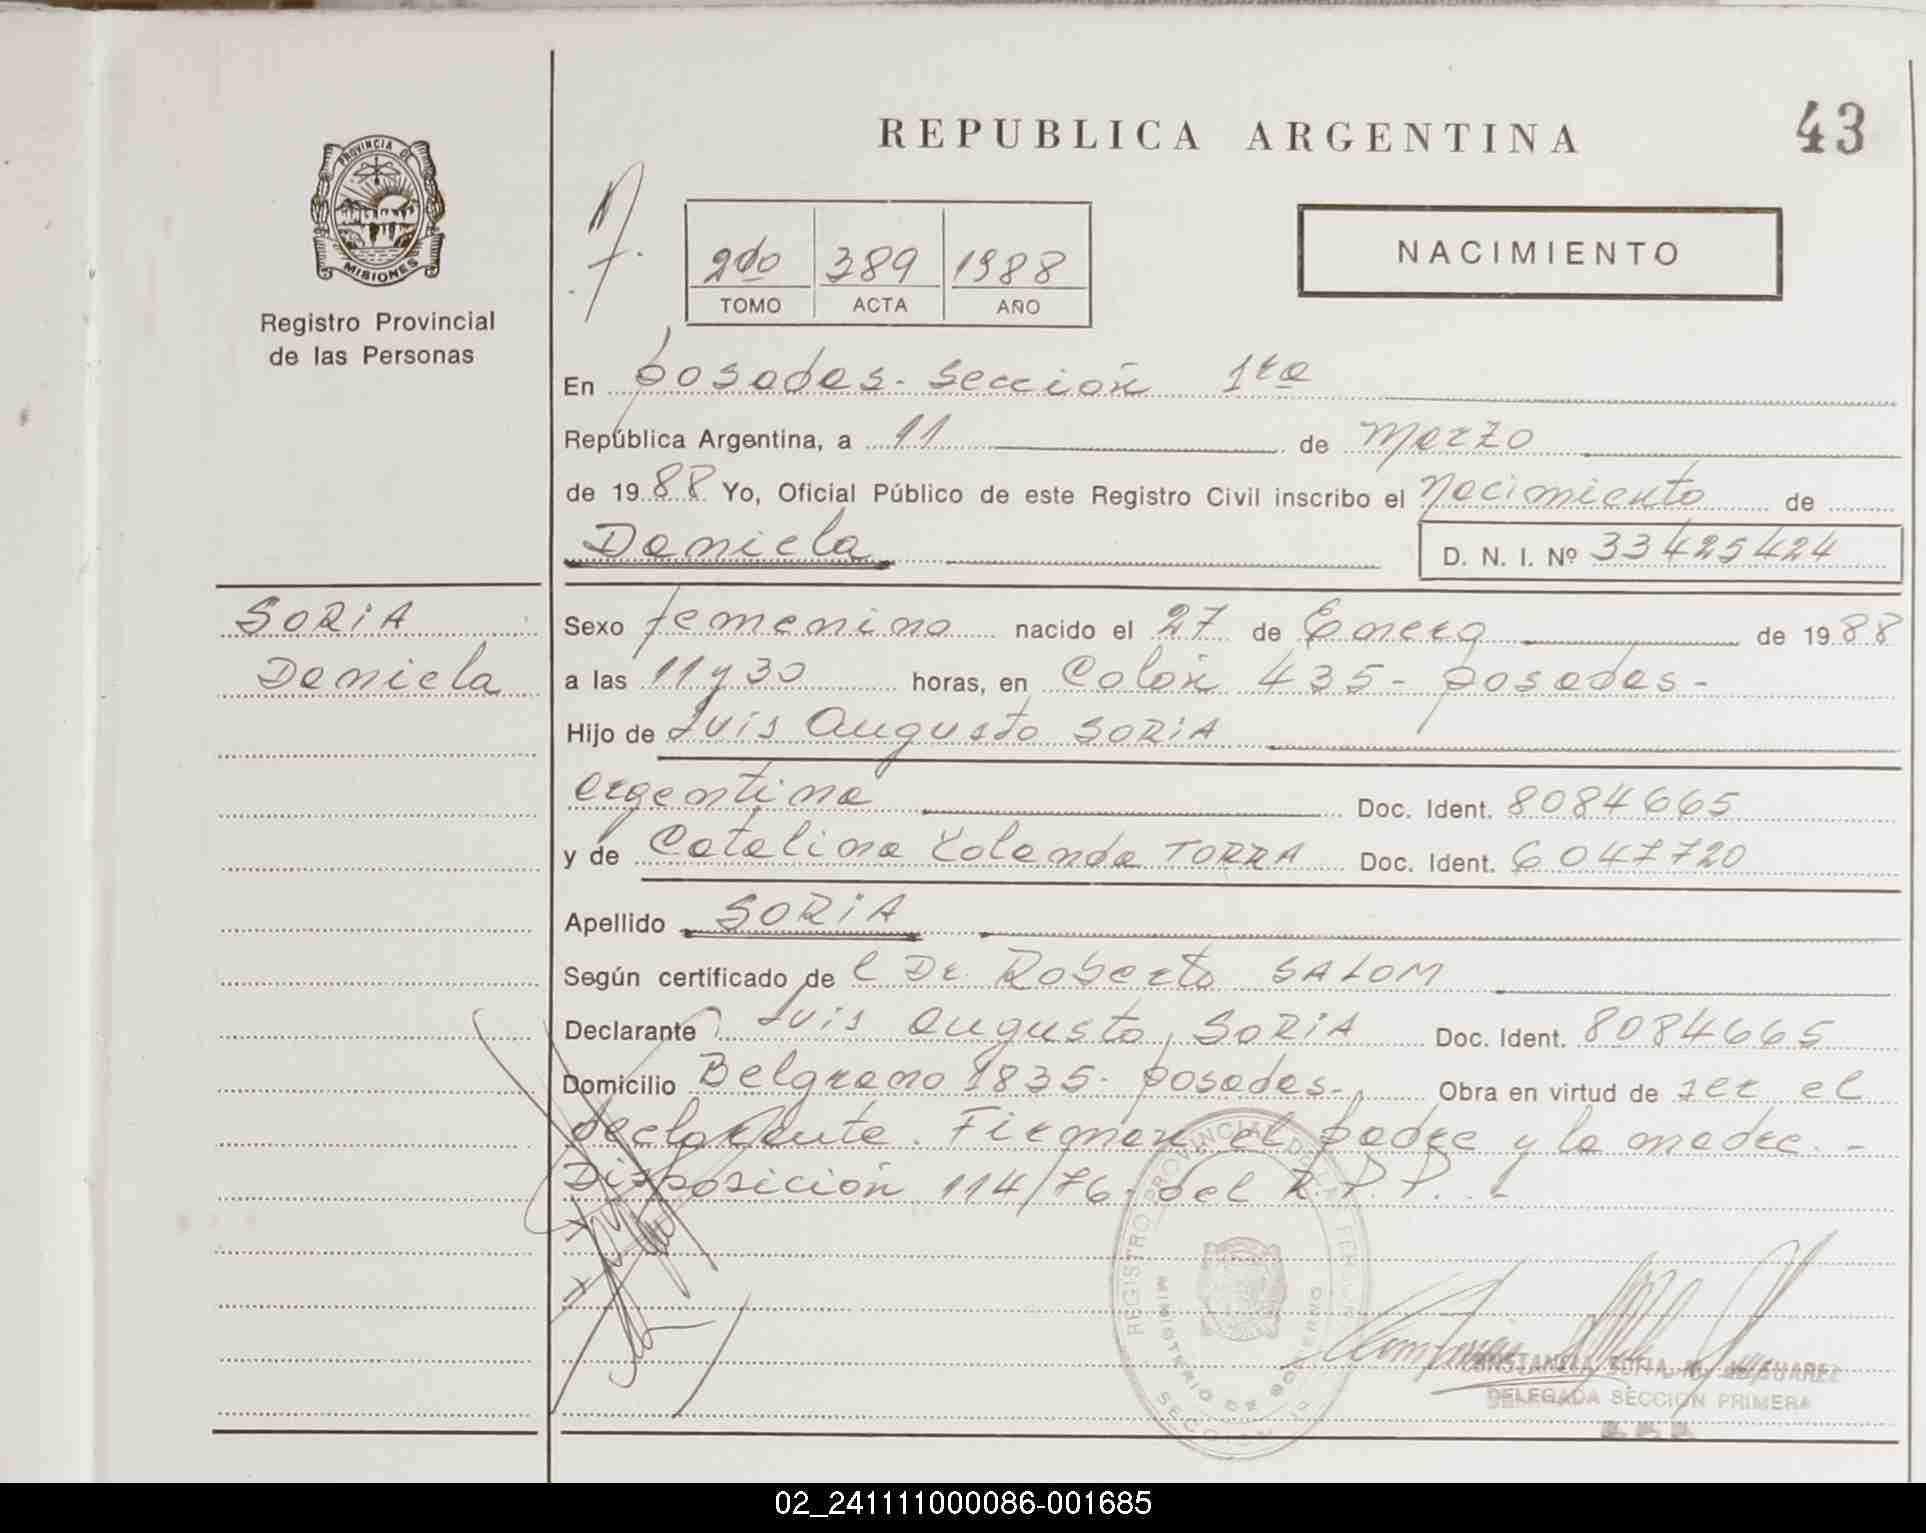 REPUBLICA ARGENTINA
43
PROVINCIA DE
MISIONES
Registro Provincial
de las Personas
2do 389 1988
TOMO ACTA AÑO
NACIMIENTO
En posadas - sección 1ra
República Argentina, a 11 de marzo
de 1988 Yo, Oficial Público de este Registro Civil inscribo el nacimiento de
Daniela
D. N. I. Nº 33425424
SORIA
Daniela
Sexo femenino nacido el 27 de Enero de 1988
a las 11 y 30 horas, en Colón 435 - posadas -
Hijo de Luis Augusto SORIA
argentina Doc. Ident. 8084665
y de Catalina Yolanda TORRA Doc. Ident. 6047720
Apellido SORIA
Según certificado de l Dr. Roberto SALOM
Declarante Luis Augusto SORIA Doc. Ident. 8084665
Domicilio Belgrano 1835 - posadas - Obra en virtud de ser el
declarante. Firman el padre y la madre. -
Disposición 114/76 - del R.P.P. -
REGISTRO PROVINCIAL DE LAS PERSONAS
MINISTERIO DE GOBIERNO
SECCION 1
CONSTANCIA SOFIA SUAREZ
DELEGADA SECCION PRIMERA
02_241111000086-001685